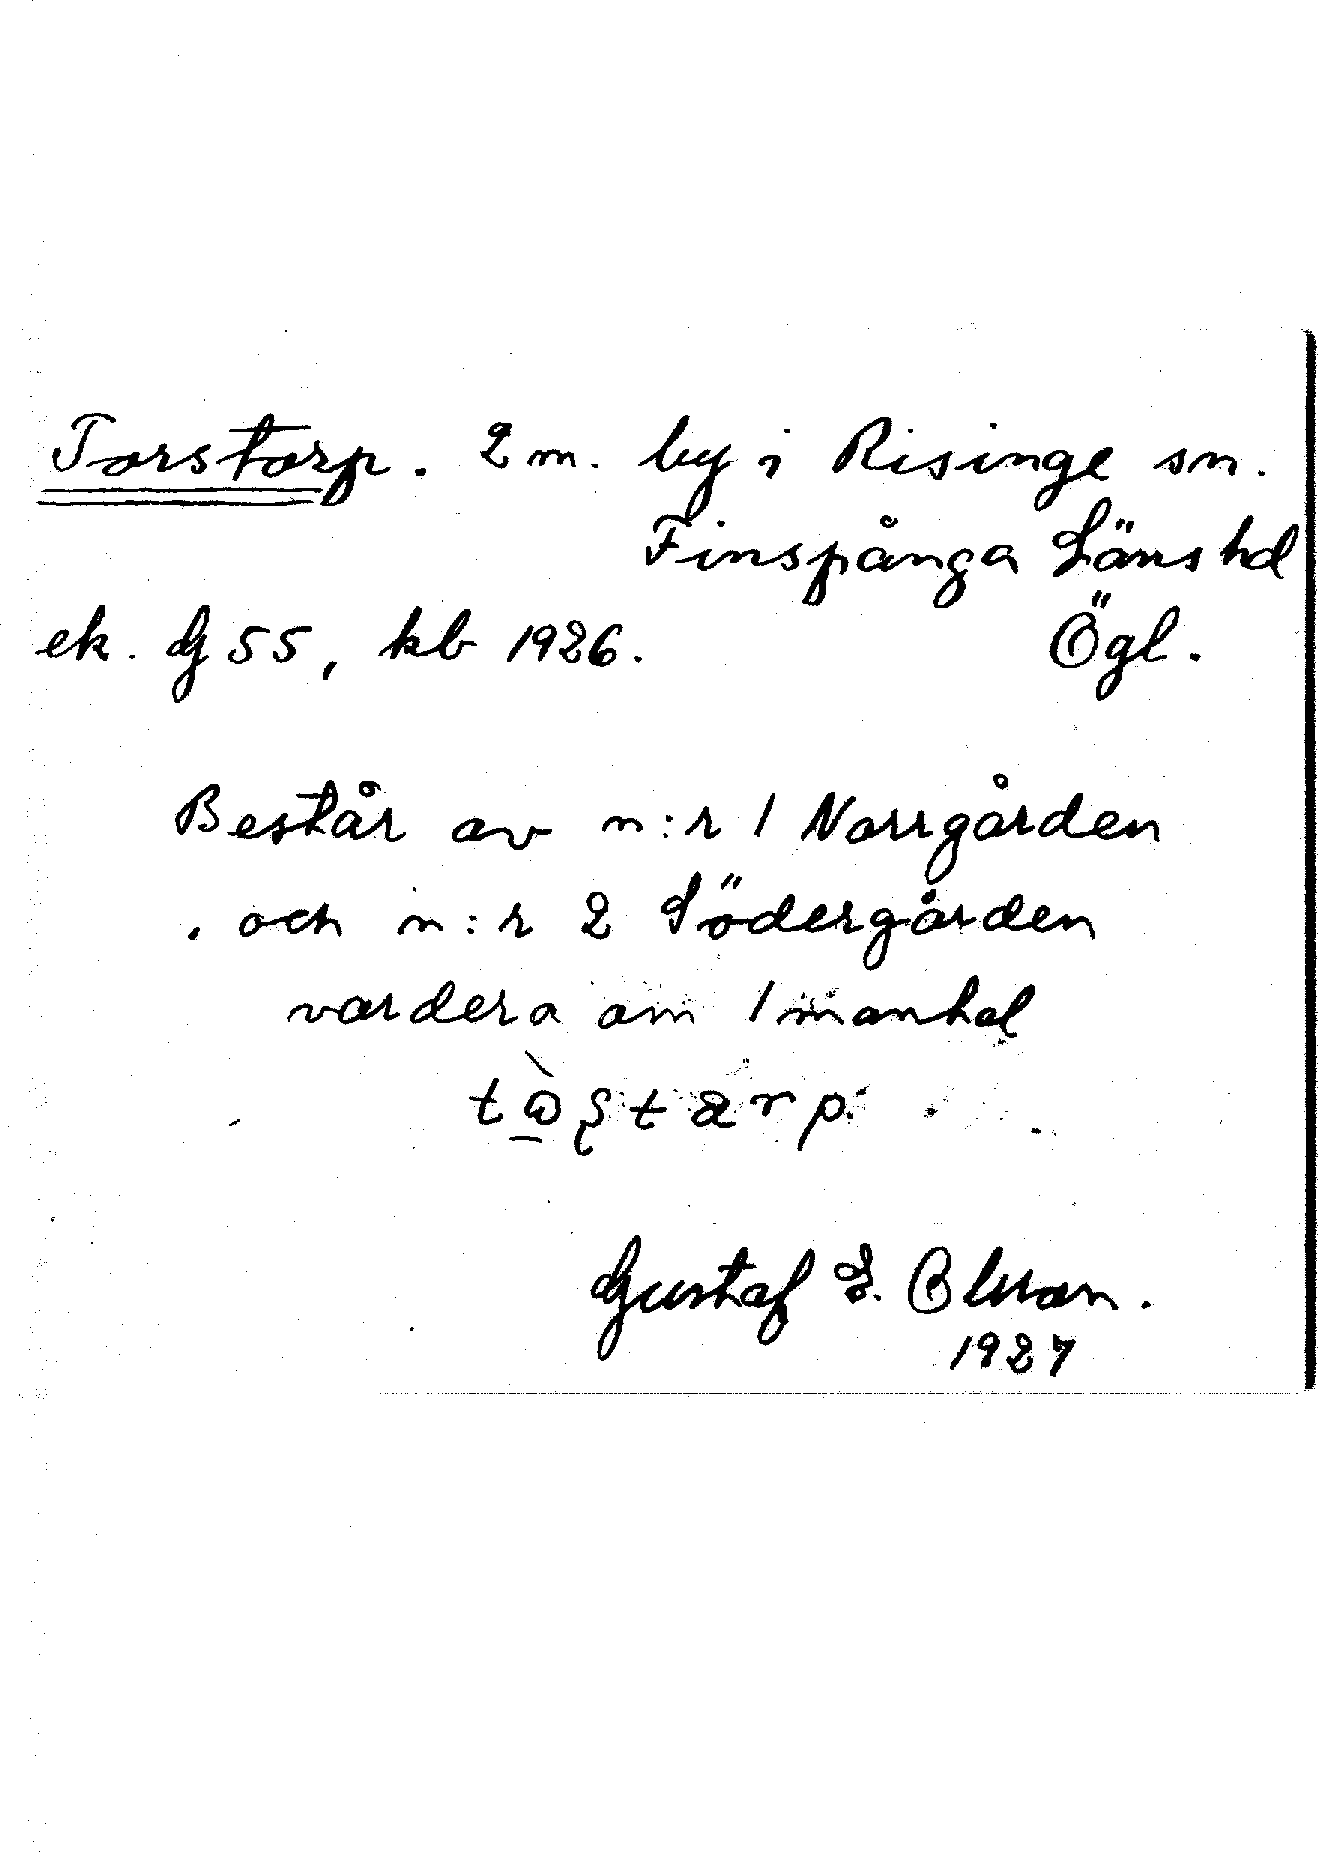 Torstorp. 2 m. by i Risinge sn.
Finspånga Läns hd
ek. G 55, kb 1926. Ögl.
Består av n:r 1 Norrgården
och n:r 2 Södergården
vardera om 1 manhal
Gustaf E. Olsson.
1927